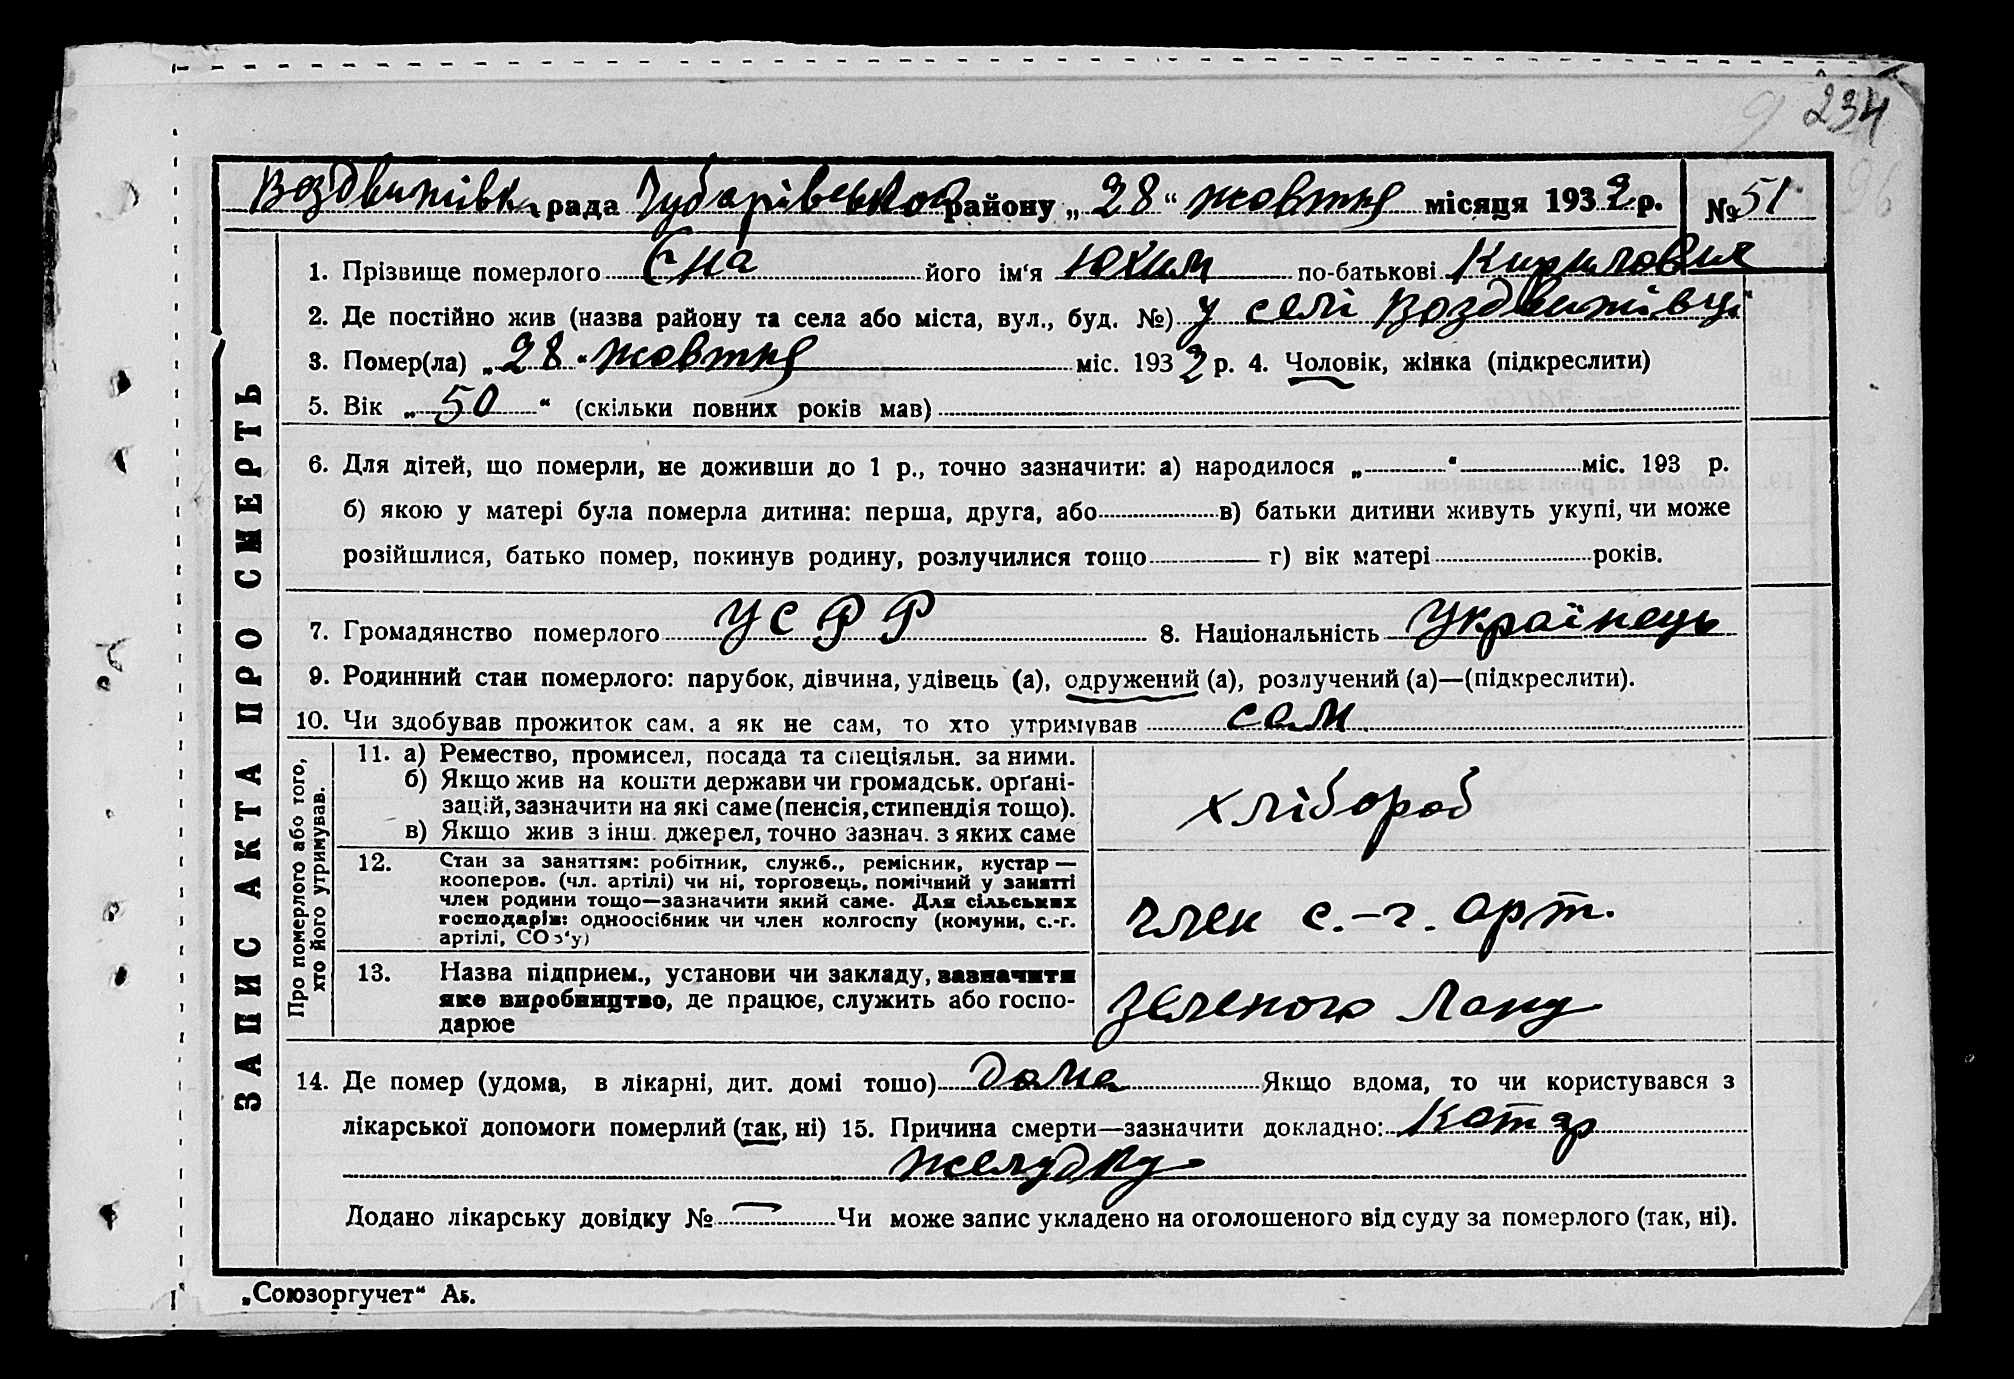 234
96
Воздвижівка рада Чубарівського району „28“ жовтня місяця 1932 р. № 51
ЗАПИС АКТА ПРО СМЕРТЬ
1. Прізвище померлого Сна його ім‘я Юхим по-батькові Кирилович
2. Де постійно жив (назва району та села або міста, вул., буд. №) у селі Воздвижівці
3. Помер(ла) „28“ жовтня міс. 1932 р. 4. Чоловік, жінка (підкреслити)
5. Вік „50“ (скільки повних років мав)
6. Для дітей, що померли, не доживши до 1 р., точно зазначити: а) народилося „ “ міс. 193 р.
б) якою у матері була померла дитина: перша, друга, або в) батьки дитини живуть укупі, чи може
розійшлися, батько помер, покинув родину, розлучилися тощо г) вік матері років.
7. Громадянство померлого УСРР 8. Національність Українець
9. Родинний стан померлого: парубок, дівчина, удівець (а), одружений (а), розлучений (а)—(підкреслити).
10. Чи здобував прожиток сам, а як не сам, то хто утримував сам
Про померлого або того,
хто його утримував.
11. а) Ремество, промисел, посада та спеціяльн. за ними.
б) Якщо жив на кошти держави чи громадськ. орґані-
зацій, зазначити на які саме (пенсія, стипендія тощо).
в) Якщо жив з інш. джерел, точно зазнач. з яких саме
хлібороб
12. Стан за заняттям: робітник, служб., ремісник, кустар —
кооперов. (чл. артілі) чи ні, торговець, помічний у занятті
член родини тощо—зазначити який саме. Для сільських
господарів: одноосібник чи член колгоспу (комуни, с.-г.
артілі, СОз‘у)
член с.-г. арт.
13. Назва підприєм., установи чи закладу, зазначити
яке виробництво, де працює, служить або госпо-
дарює
Зеленого Лану
14. Де помер (удома, в лікарні, дит. домі тощо) дома Якщо вдома, то чи користувався з
лікарської допомоги померлий (так, ні) 15. Причина смерти—зазначити докладно: Катар
желудку
Додано лікарську довідку № — Чи може запис укладено на оголошеного від суду за померлого (так, ні).
„Союзоргучет“ А5.